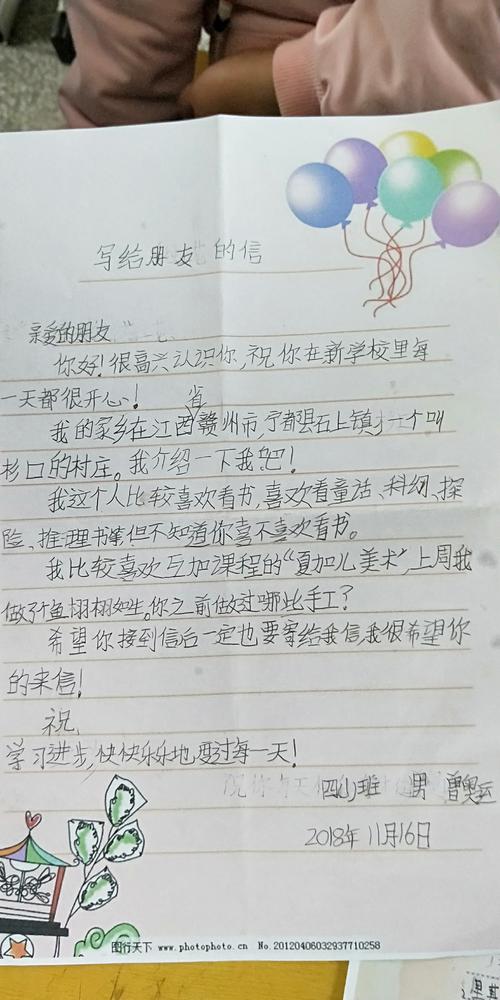 写给朋友的信
亲爱的朋友
你好!很高兴认识你,祝你在新学校里每
一天都很开心!
我的家乡在江西省赣州市,宁都县石上镇,一个叫
杉口的村庄。我介绍一下我吧!
我这个人比较喜欢看书,喜欢看童话、科幻、探
险、推理书等但不知道你喜不喜欢看书。
我比较喜欢互加课程的“夏加儿美术”,上周我
做了鱼栩栩如生。你之前做过哪些手工?
希望你接到信后一定也要寄给我信,我很希望你
的来信!
祝
学习进步,快快乐乐地要过每一天!
男 曾奥运
2018年11月16日
图行天下 www.photophoto.cn No.20120406032937710258